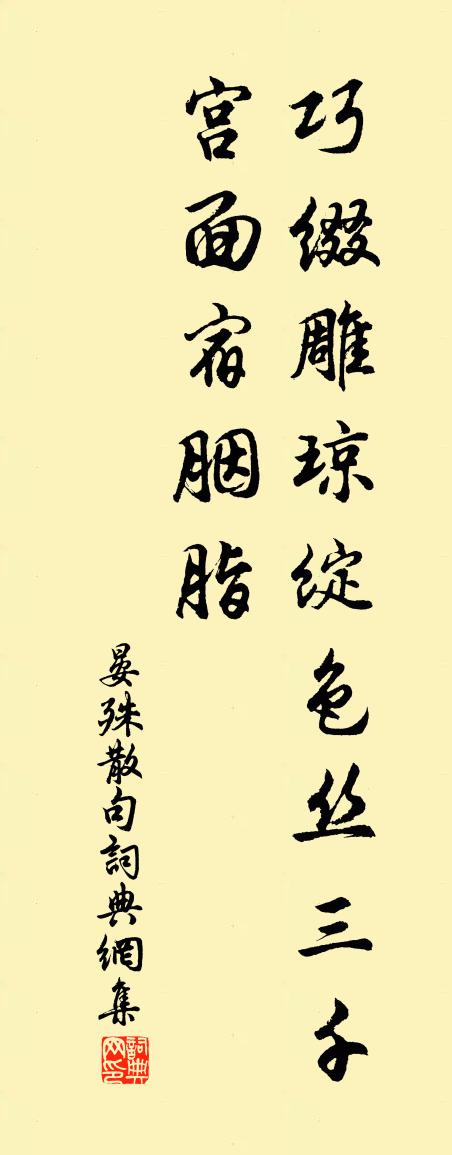 巧缀雕琼绽色丝三千
宫面宿胭脂
晏殊散句詞典網集
詞典网印